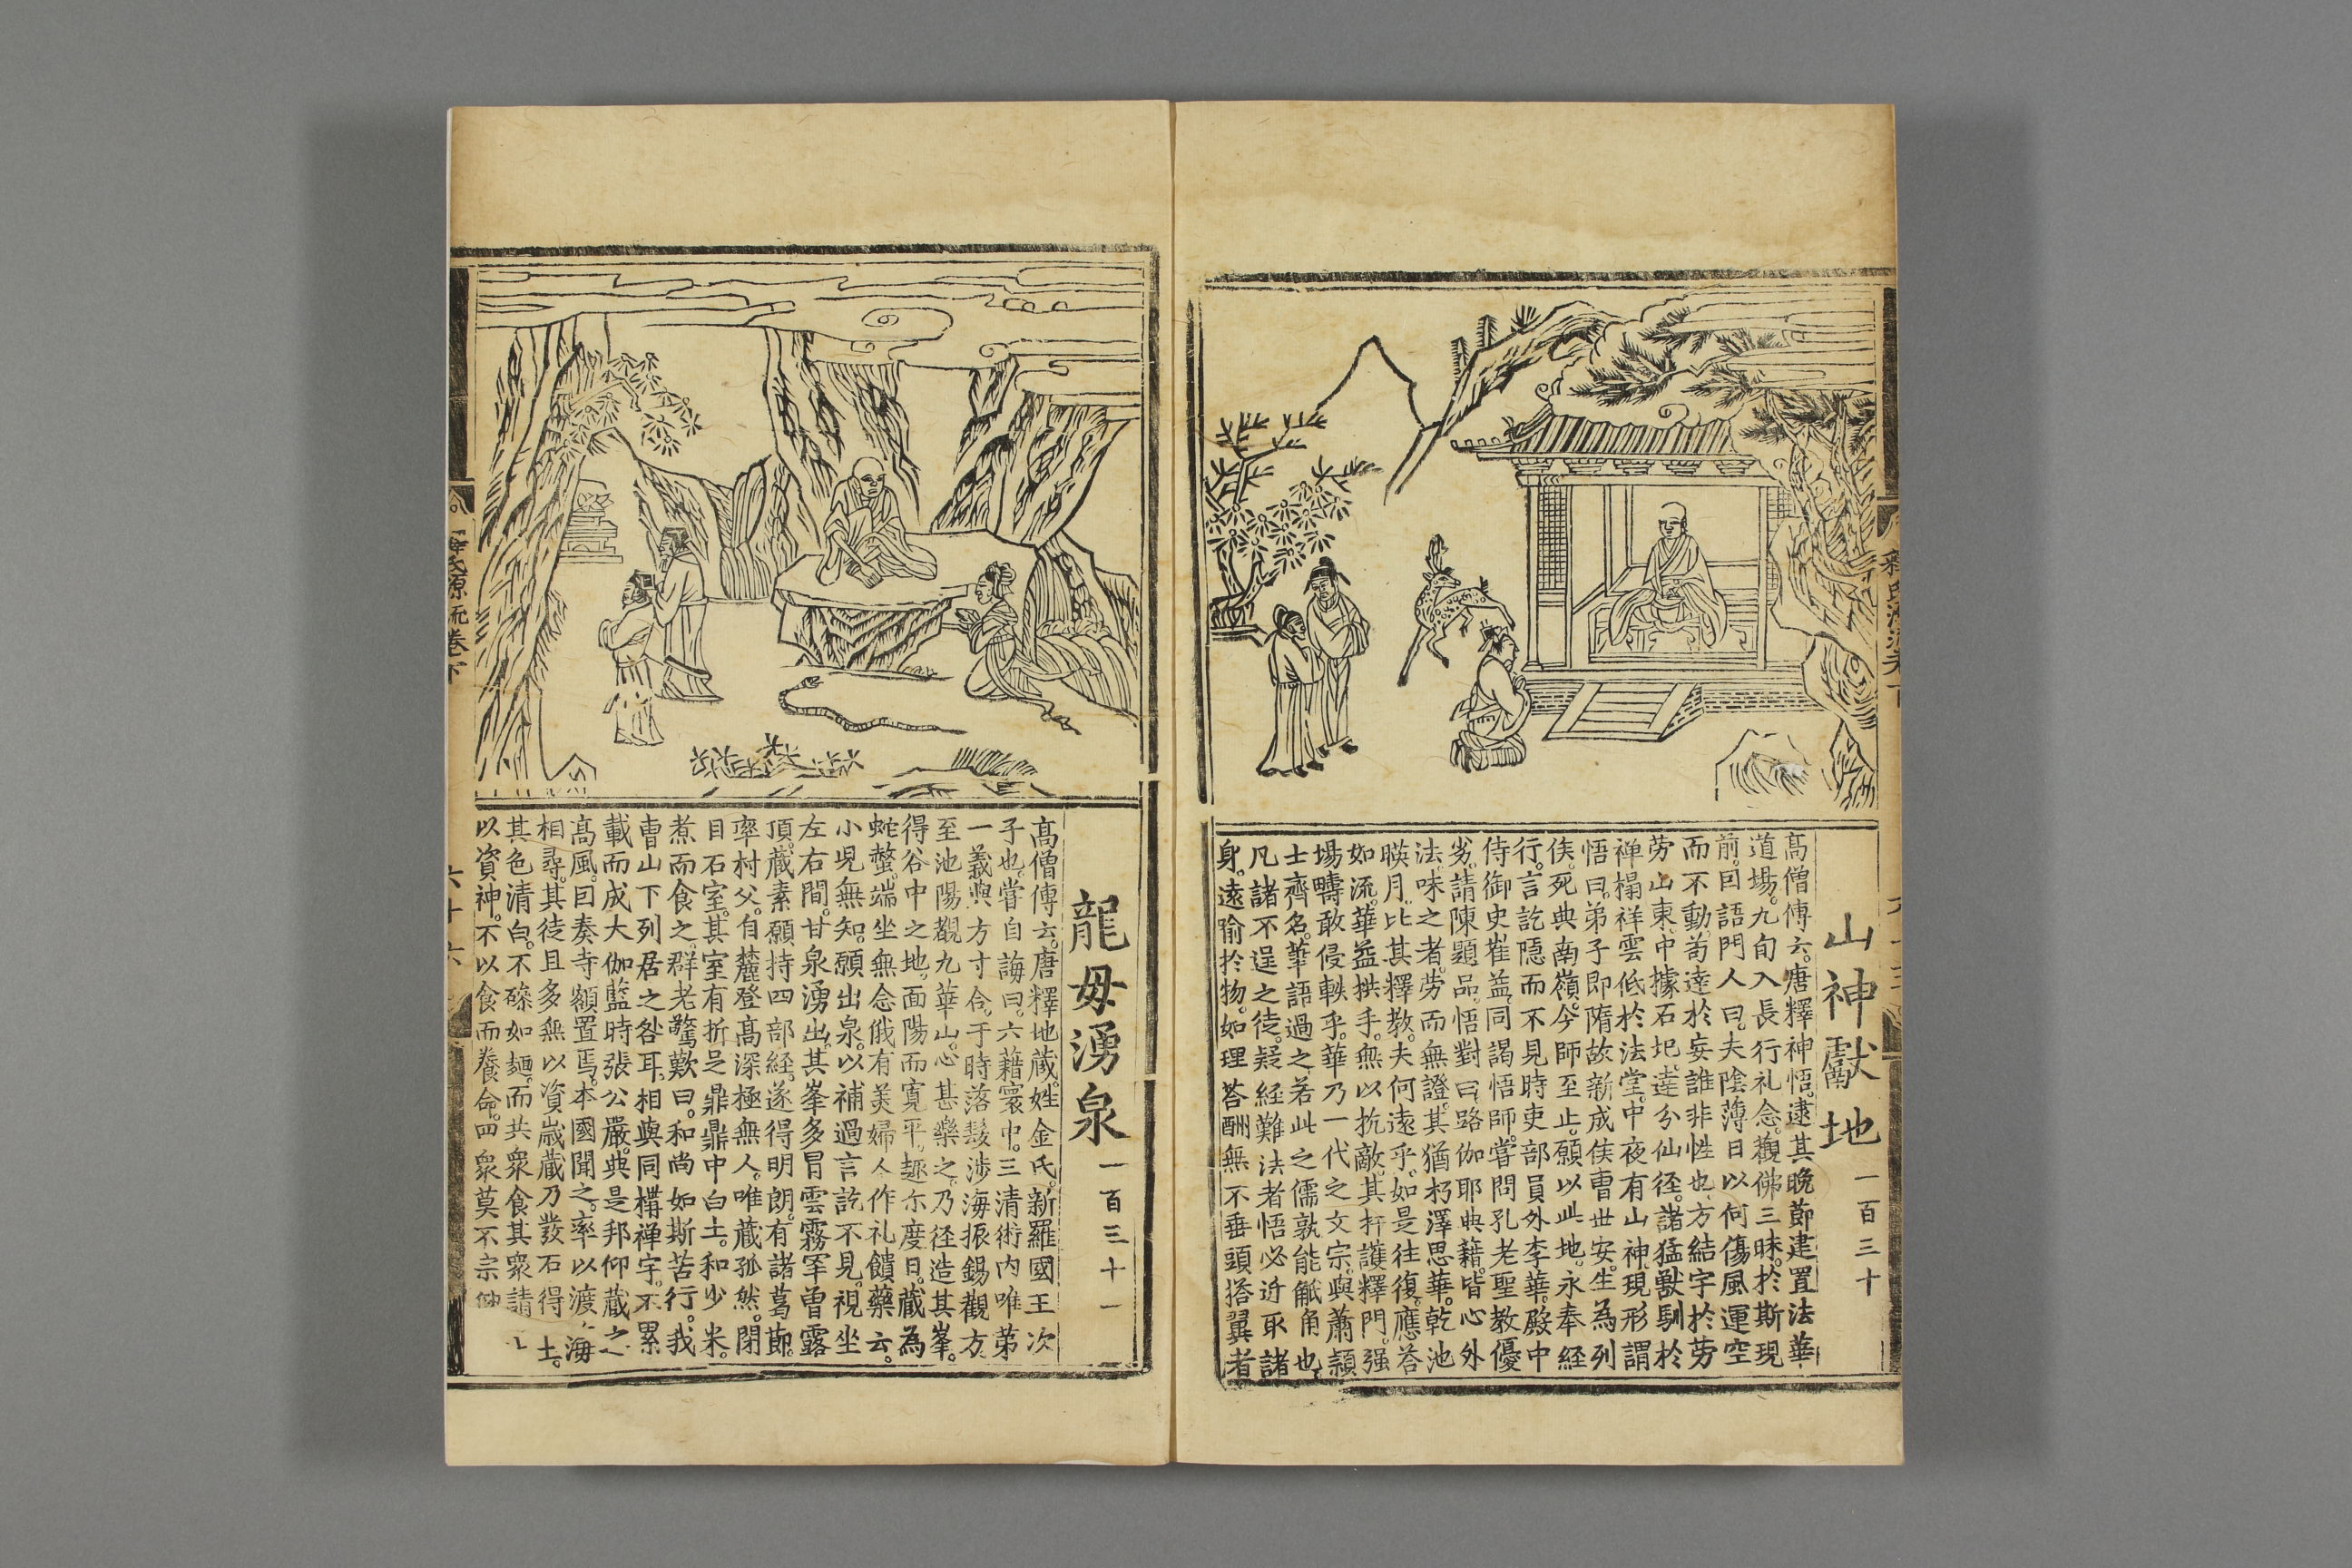 山神獻地 一百三十
高僧傳云。唐釋神悟。逮其晚節建置法華
道場。九旬入長行礼念。觀佛三昧。於斯現
前。因語門人曰。夫陰薄日以何傷風運空
而不動。苟達於妄誰非性也。方結宇於勞
勞山東。中據石圯。達分仙径。諸猛獸馴於
禅榻祥雲低於法堂。中夜有山神。現形謂
悟曰。弟子即隋故新成侯曹世安。生為列
侯。死典南嶺。今師至止。願以此地。永奉經
行。言訖隠而不見時吏部員外李華。殿中
侍御史崔益。同謁悟師。嘗問孔老聖教優
劣。請陳題品。悟對曰。路伽耶典籍。皆心外
法。味之者。勞而無證。其猶朽澤思華。乾池
暎月。比其釋教。夫何遠乎。如是往復。應荅
如流。華益拱手。無以抗敵。其扞護釋門。强
場疇敢侵軼乎。華乃一代之文宗。與蕭穎
士齊名。華語過之若此之儒孰能觝角也
凡諸不逞之徒。疑經難法者悟必近取諸
身。遠喻於物。如理荅酬無不垂頭搭翼者
龍母湧泉 一百三十一
高僧傳云。唐釋地藏。姓金氏。新羅國王次
子也。嘗自誨曰。六籍寰中。三清術内唯第
一義與方寸合。于時落髮涉海振錫觀方
至池陽觀九華山。心甚樂之。乃径造其峯。
得谷中之地。面陽而寛平。趣尓度日。藏為
蛇螫。端坐無念俄有美婦人作礼饋藥云。
小兒無知。願出泉。以補過言訖不見。視坐
左右間。甘泉湧出。其峯多冒雲霧罕曾露
頂。藏素願持四部經。遂得明朗。有諸葛節。
率村父。自麓登高深極無人。唯藏孤然。閉
目石室。其室有折足鼎鼎中白土。和少米。
煮而食之。群老驚歎曰。和尚如斯苦行。我
曹山下列居之咎耳。相與同構禅宇。不累
載而成大伽藍時張公嚴。典是邦仰藏之
高風。因奏寺額置焉。本國聞之。率以渡海
相尋。其徒且多無以資歲藏乃發石得土。
其色清白。不磣如麵。而共衆食其衆請
以資神。不以食而養命。四衆莫不宗仰
釋氏源流卷下
六十六